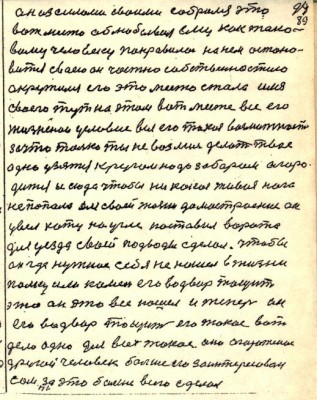 94
89
он их силами своими собрал это
вот место облюбовал ему как тако-
вому человеку понравилось на нем остано-
вится своею он частно собственностию
окружил его это место стало имя
своего тут на этом вот месте все его
жизненое условие вся его такая возможность
за что только ты не возмись делать твое
одно узятся кругом надо забором огоро-
дится и сюда чтобы ни какая живая нога
не попала для своей жизни домостроение он
увел хату на угле поставил ворота
для уезда своей подводы сделал. Чтобы
он где нужное себя не нашел в жизни
палку или камен его во двор тащит
это он это все нашел и теперь он
его во двор тащит его такое вот
дело одно для всех такое оно огороженое
другой человек больше его заинтересовал
сам за это больше всего сделал